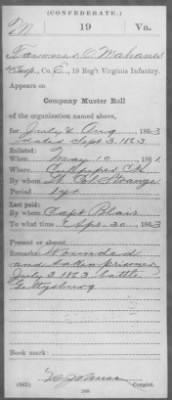 (CONFEDERATE.)
M 19 Va.
Mahanes
Corp., Co. E, 19 Reg't Virginia Infantry.
Appears on
Company Muster Roll
of the organization named above,
for July & Aug, 1863
dated Sept 3. 1863
Enlisted:
When May 10, 1861
Where Culpeper C.H.
By whom
Period 1 yr
Last paid:
By whom Capt. Blair
To what time Apr. 30, 1863
Present or absent
Remarks: Wounded
and taken prisoner
July 3 1863 battle
Gettysburg
Copyist.